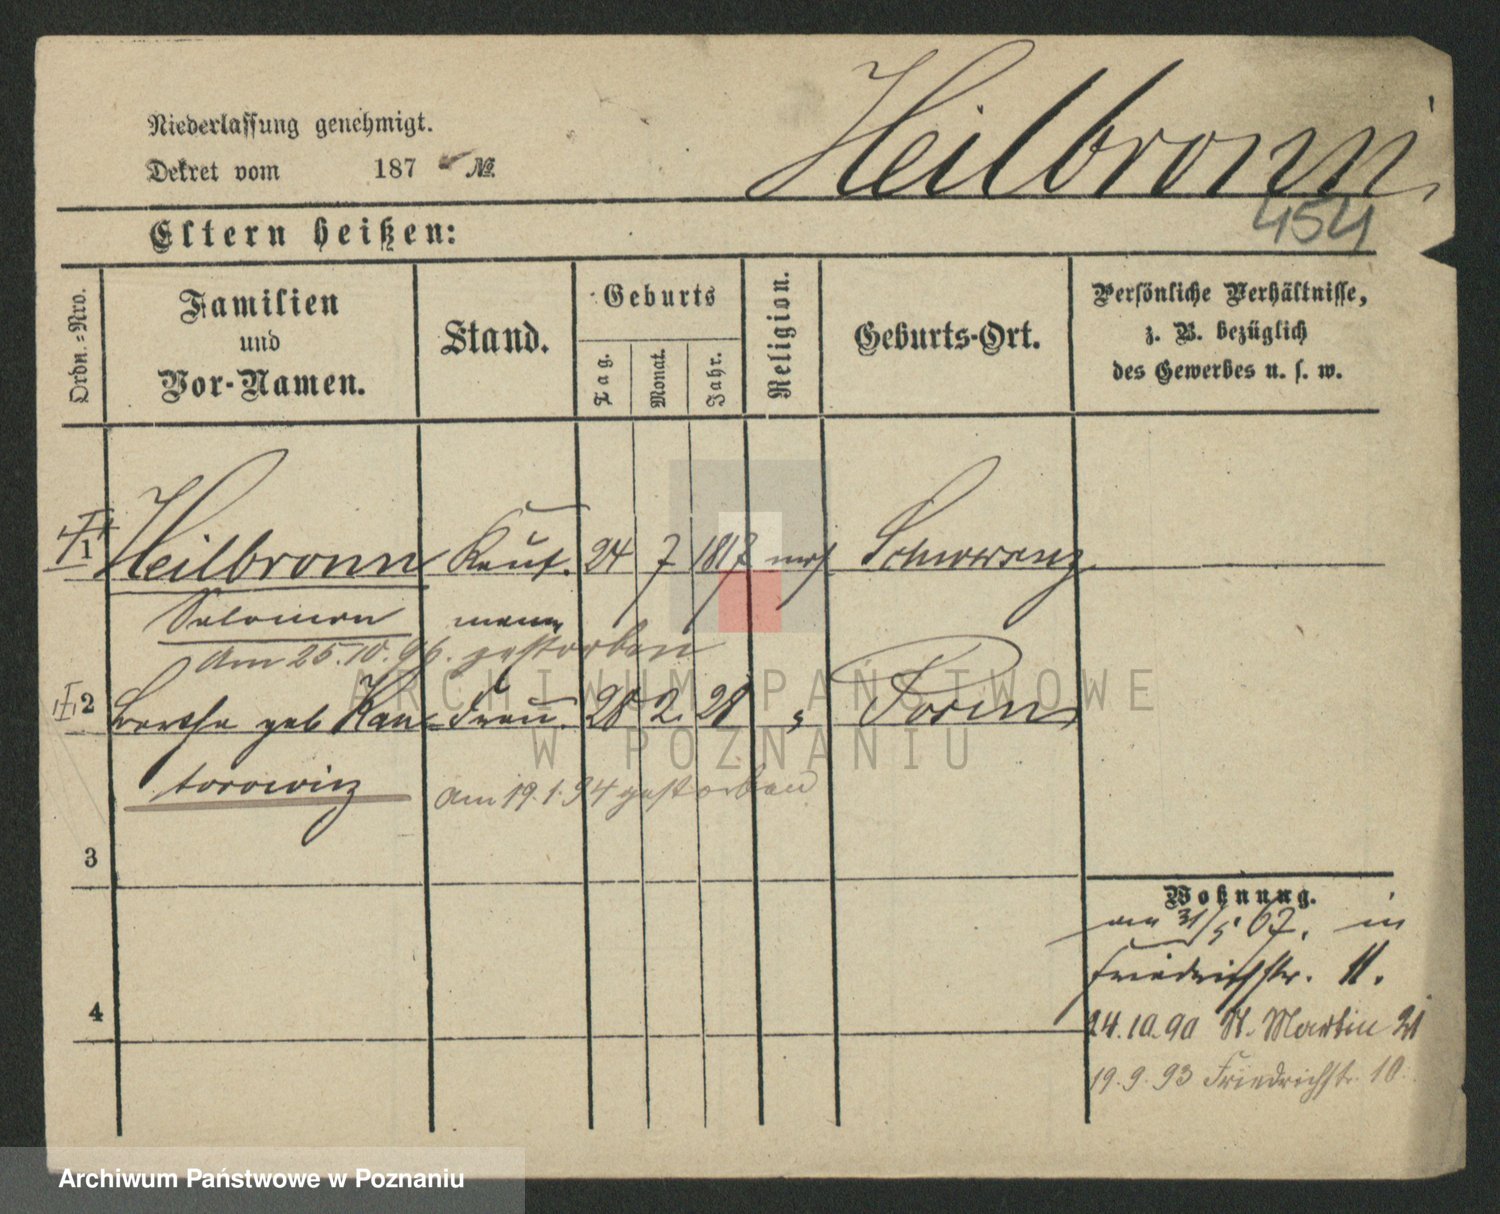 Heilbronn
Niederlassung genehmigt.
Dekret vom 187 №
454
Eltern heißen:
Ordn.-Nro.
Familien
und
Vor-Namen.
Stand.
Geburts
Tag.
Monat.
Jahr.
Religion.
Geburts-Ort.
Persönliche Verhältnisse,
z. B. bezüglich
des Gewerbes u. s. w.
1 Heilbronn Kauf- 24 7 1817 mos. Schwersenz
Salomon mann
Am 25.10.96. gestorben
2 Bertha geb Kan- Frau 28 2. 28 "
torowicz am 19.1.94 gestorben
3
4
Wohnung.
am 31/5 67. in
Friedrichstr. 11.
24.10.90 St. Martin 21
19.9.93 Friedrichstr. 10.
ARCHIWUM PAŃSTWOWE
W POZNANIU
Archiwum Państwowe w Poznaniu